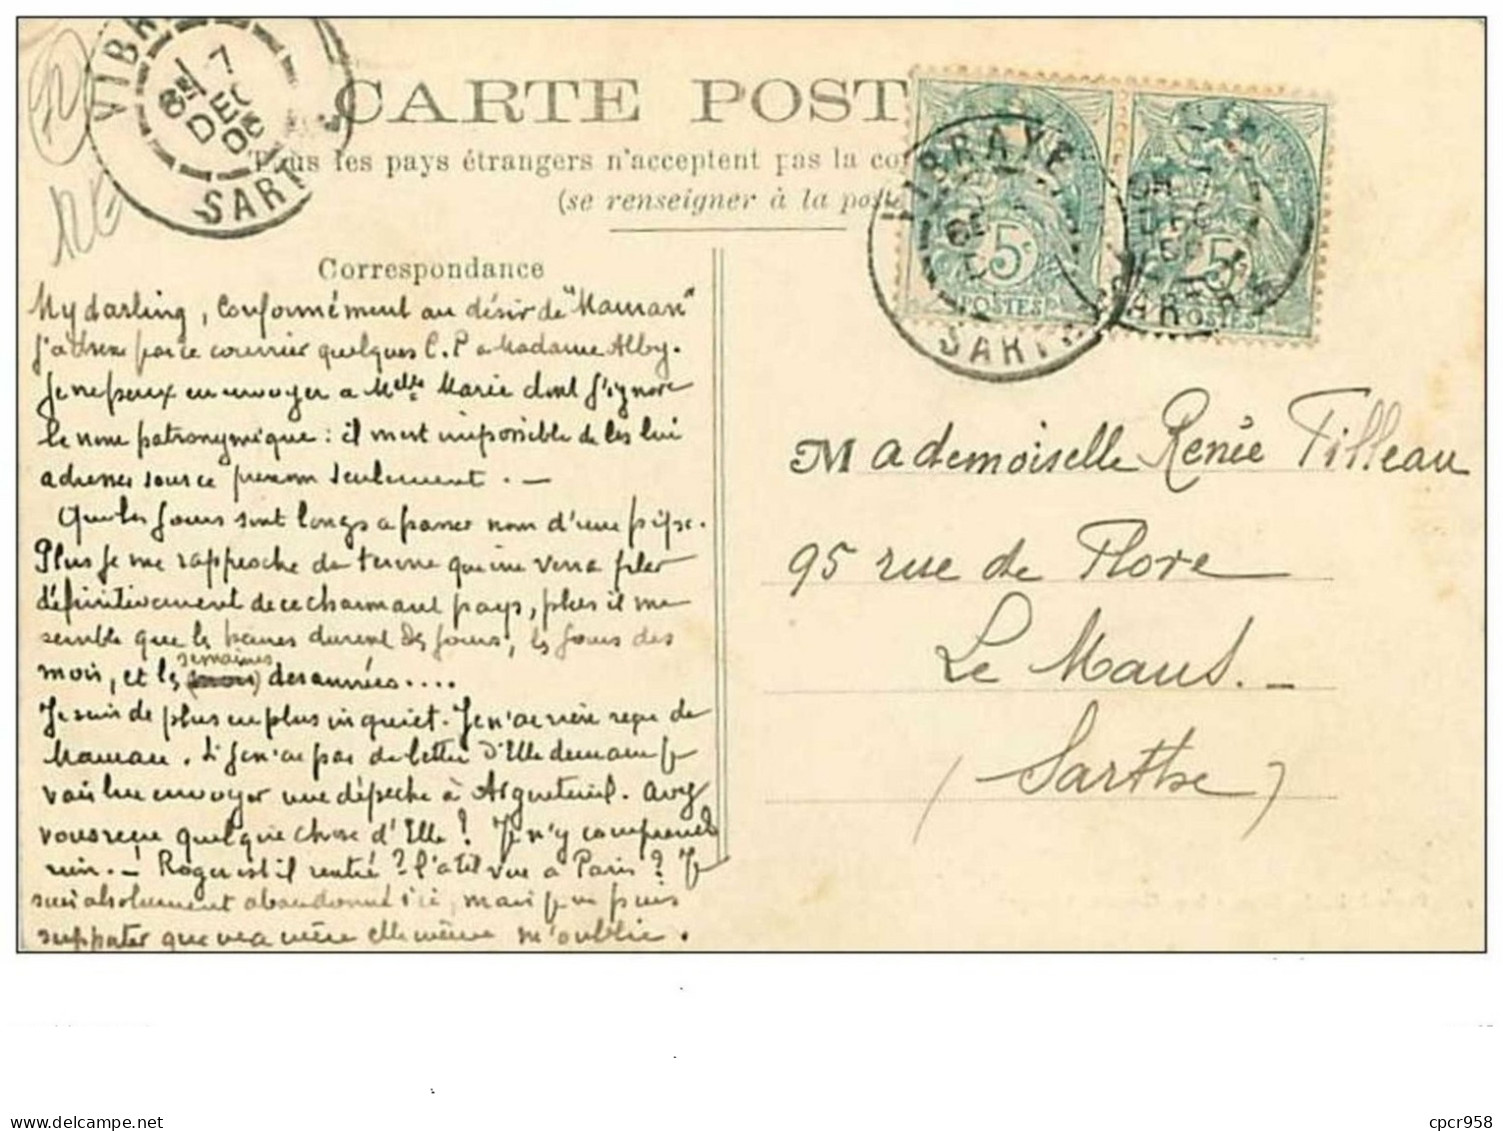 VIBR
7
DEC
06
SART
CARTE POST
Tous les pays étrangers n'acceptent pas la co
(se renseigner à la poste
VIBRAYE
SARTHE
5c
POSTES
5c
POSTES
Correspondance
My darling, conformément au désir de "Maman"
j'adresse par ce courrier quelques C.P a Madame Alby.
Je ne peux en envoyer a Melle Marie dont j'ignore
le nom patronymique : il m'est impossible de les lui
adresser sous ce prenom seulement . –
Que les jours sont longs a passer nom d'une pipe.
Plus je me rapproche du terme qui me verra filer
définitivement de ce charmant pays, plus il me
semble que les heures durent des jours, les jours des
mois, et les semaines des années....
Je suis de plus en plus inquiet. Je n'ai rien reçu de
Maman. Si je n'ai pas de lettre d'Elle demain je
vais lui envoyer une dépeche à Argenteuil. Avez
vous reçu quelque chose d'Elle ? Je n'y comprends
rien. – Roger est il rentré ? l'a til vue à Paris ? Je
suis absolument abandonné ici, mais je ne puis
supporter que ma mère elle même m'oublie.
Mademoiselle Renée Tilleau
95 rue de Flore
Le Mans. –
(Sarthe)
cpcr958